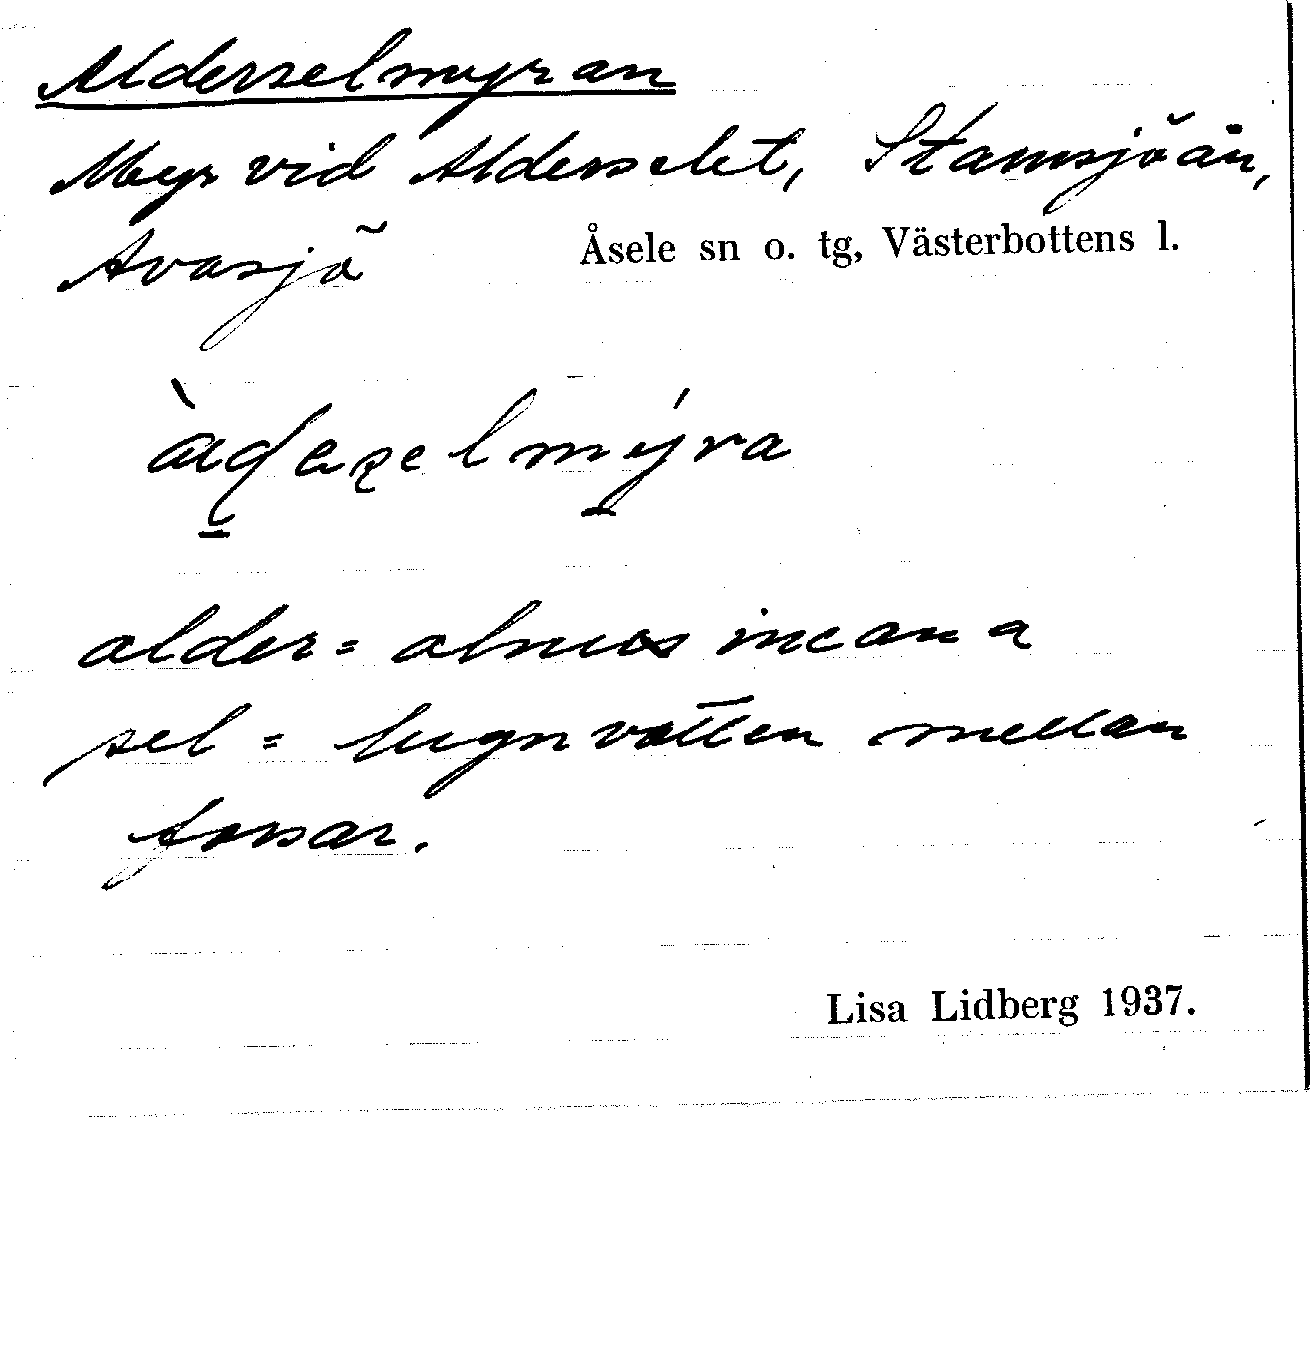 Alderselmyran
Myr vid Alderselet, Stamsjöån,
Avasjö Åsele sn o. tg, Västerbottens l.
alder = alnus incana
sel = lugnvatten mellan
forsar.
Lisa Lidberg 1937.